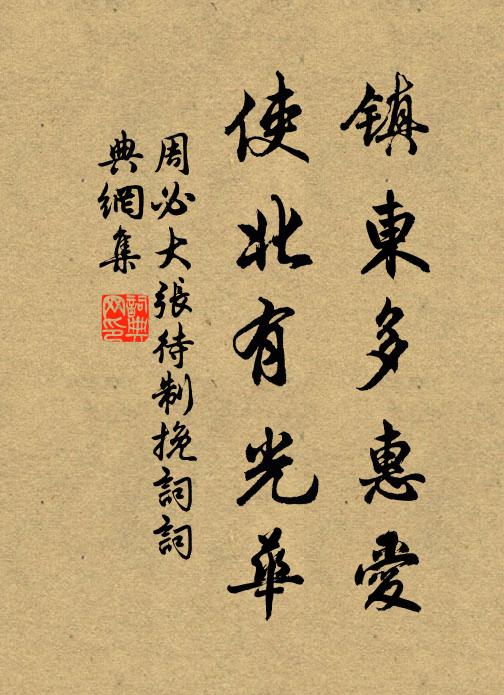 鎮東多惠愛
使北有光華
周必大張待制挽詞詞
典網集
詞典網印